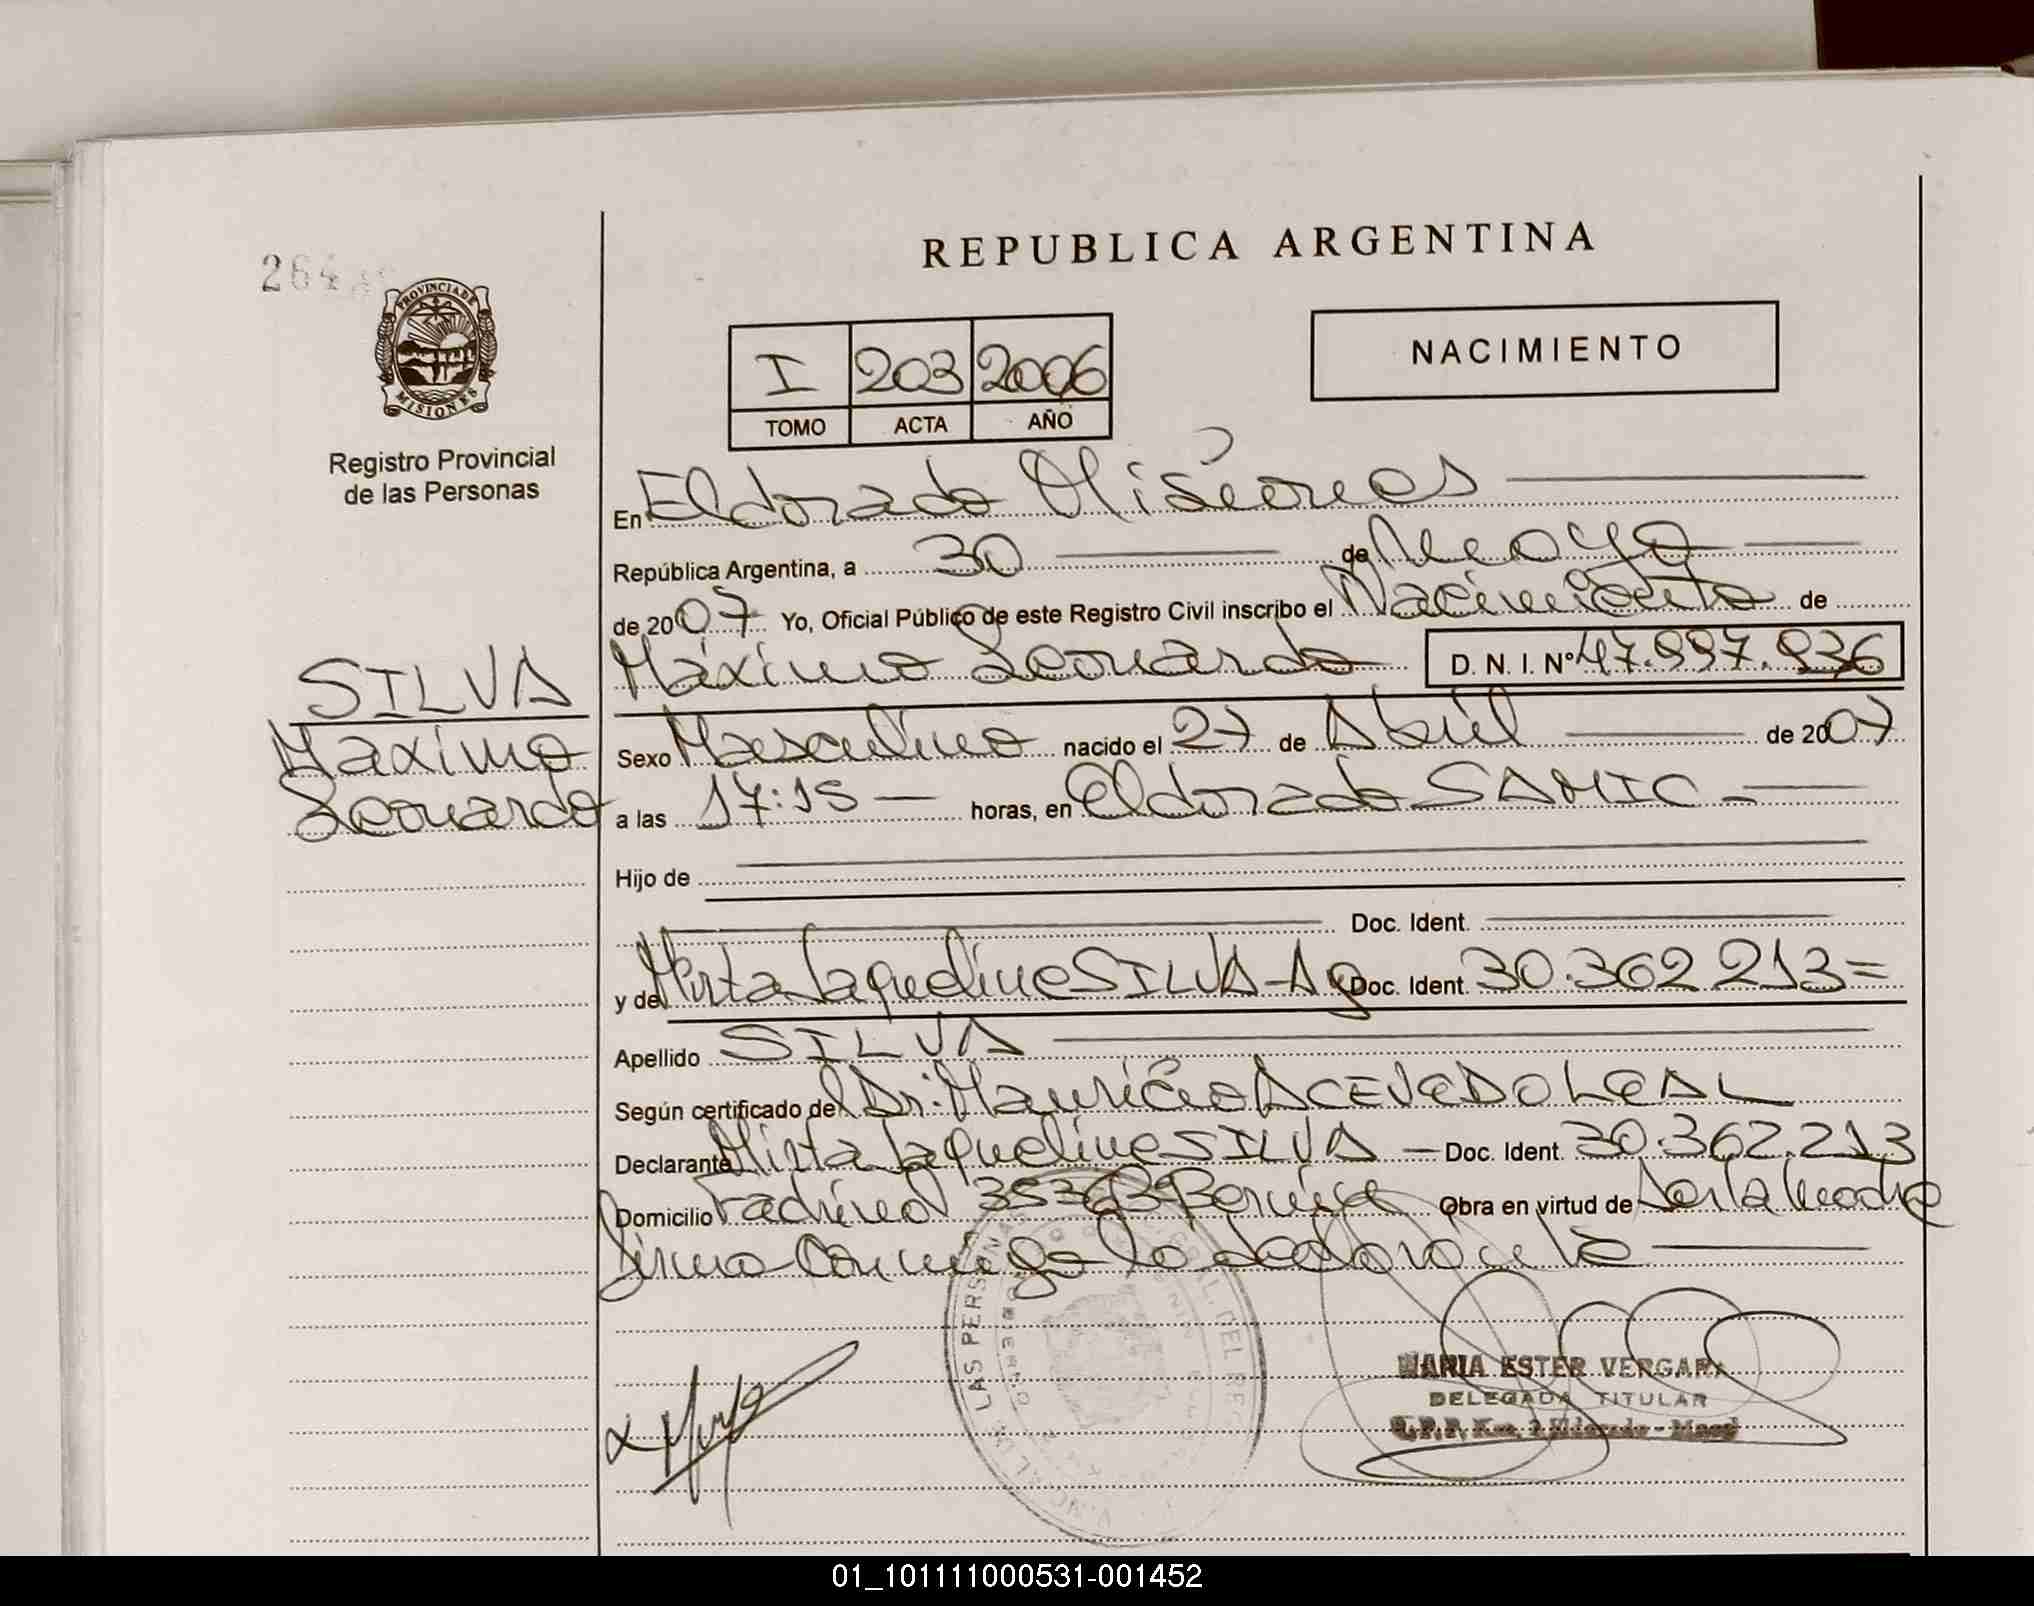 REPUBLICA ARGENTINA
264
PROVINCIA DE
MISIONES
Registro Provincial
de las Personas
NACIMIENTO
I 203 2006
TOMO ACTA AÑO
En Eldorado Misiones
República Argentina, a 30 de Mayo
de 2007 Yo, Oficial Público de este Registro Civil inscribo el Nacimiento de
Máximo Leonardo D. N. I. Nº 47.997.936
SILVA
Maximo
Leonardo
Sexo Masculino nacido el 27 de Abril de 2007
a las 17:15 horas, en Eldorado SAMIC
Hijo de
Doc. Ident.
y de Mirta Jaqueline SILVA - Ag Doc. Ident. 30.362.213=
Apellido SILVA
Según certificado del Dr: Mauricio ACEVEDO LEAL
Declarante Mirta Jaqueline SILVA Doc. Ident. 30.362.213
Domicilio Obra en virtud de ser la madre
firma conmigo la declarante
MARIA ESTER VERGARA
DELEGADA TITULAR
01_101111000531-001452